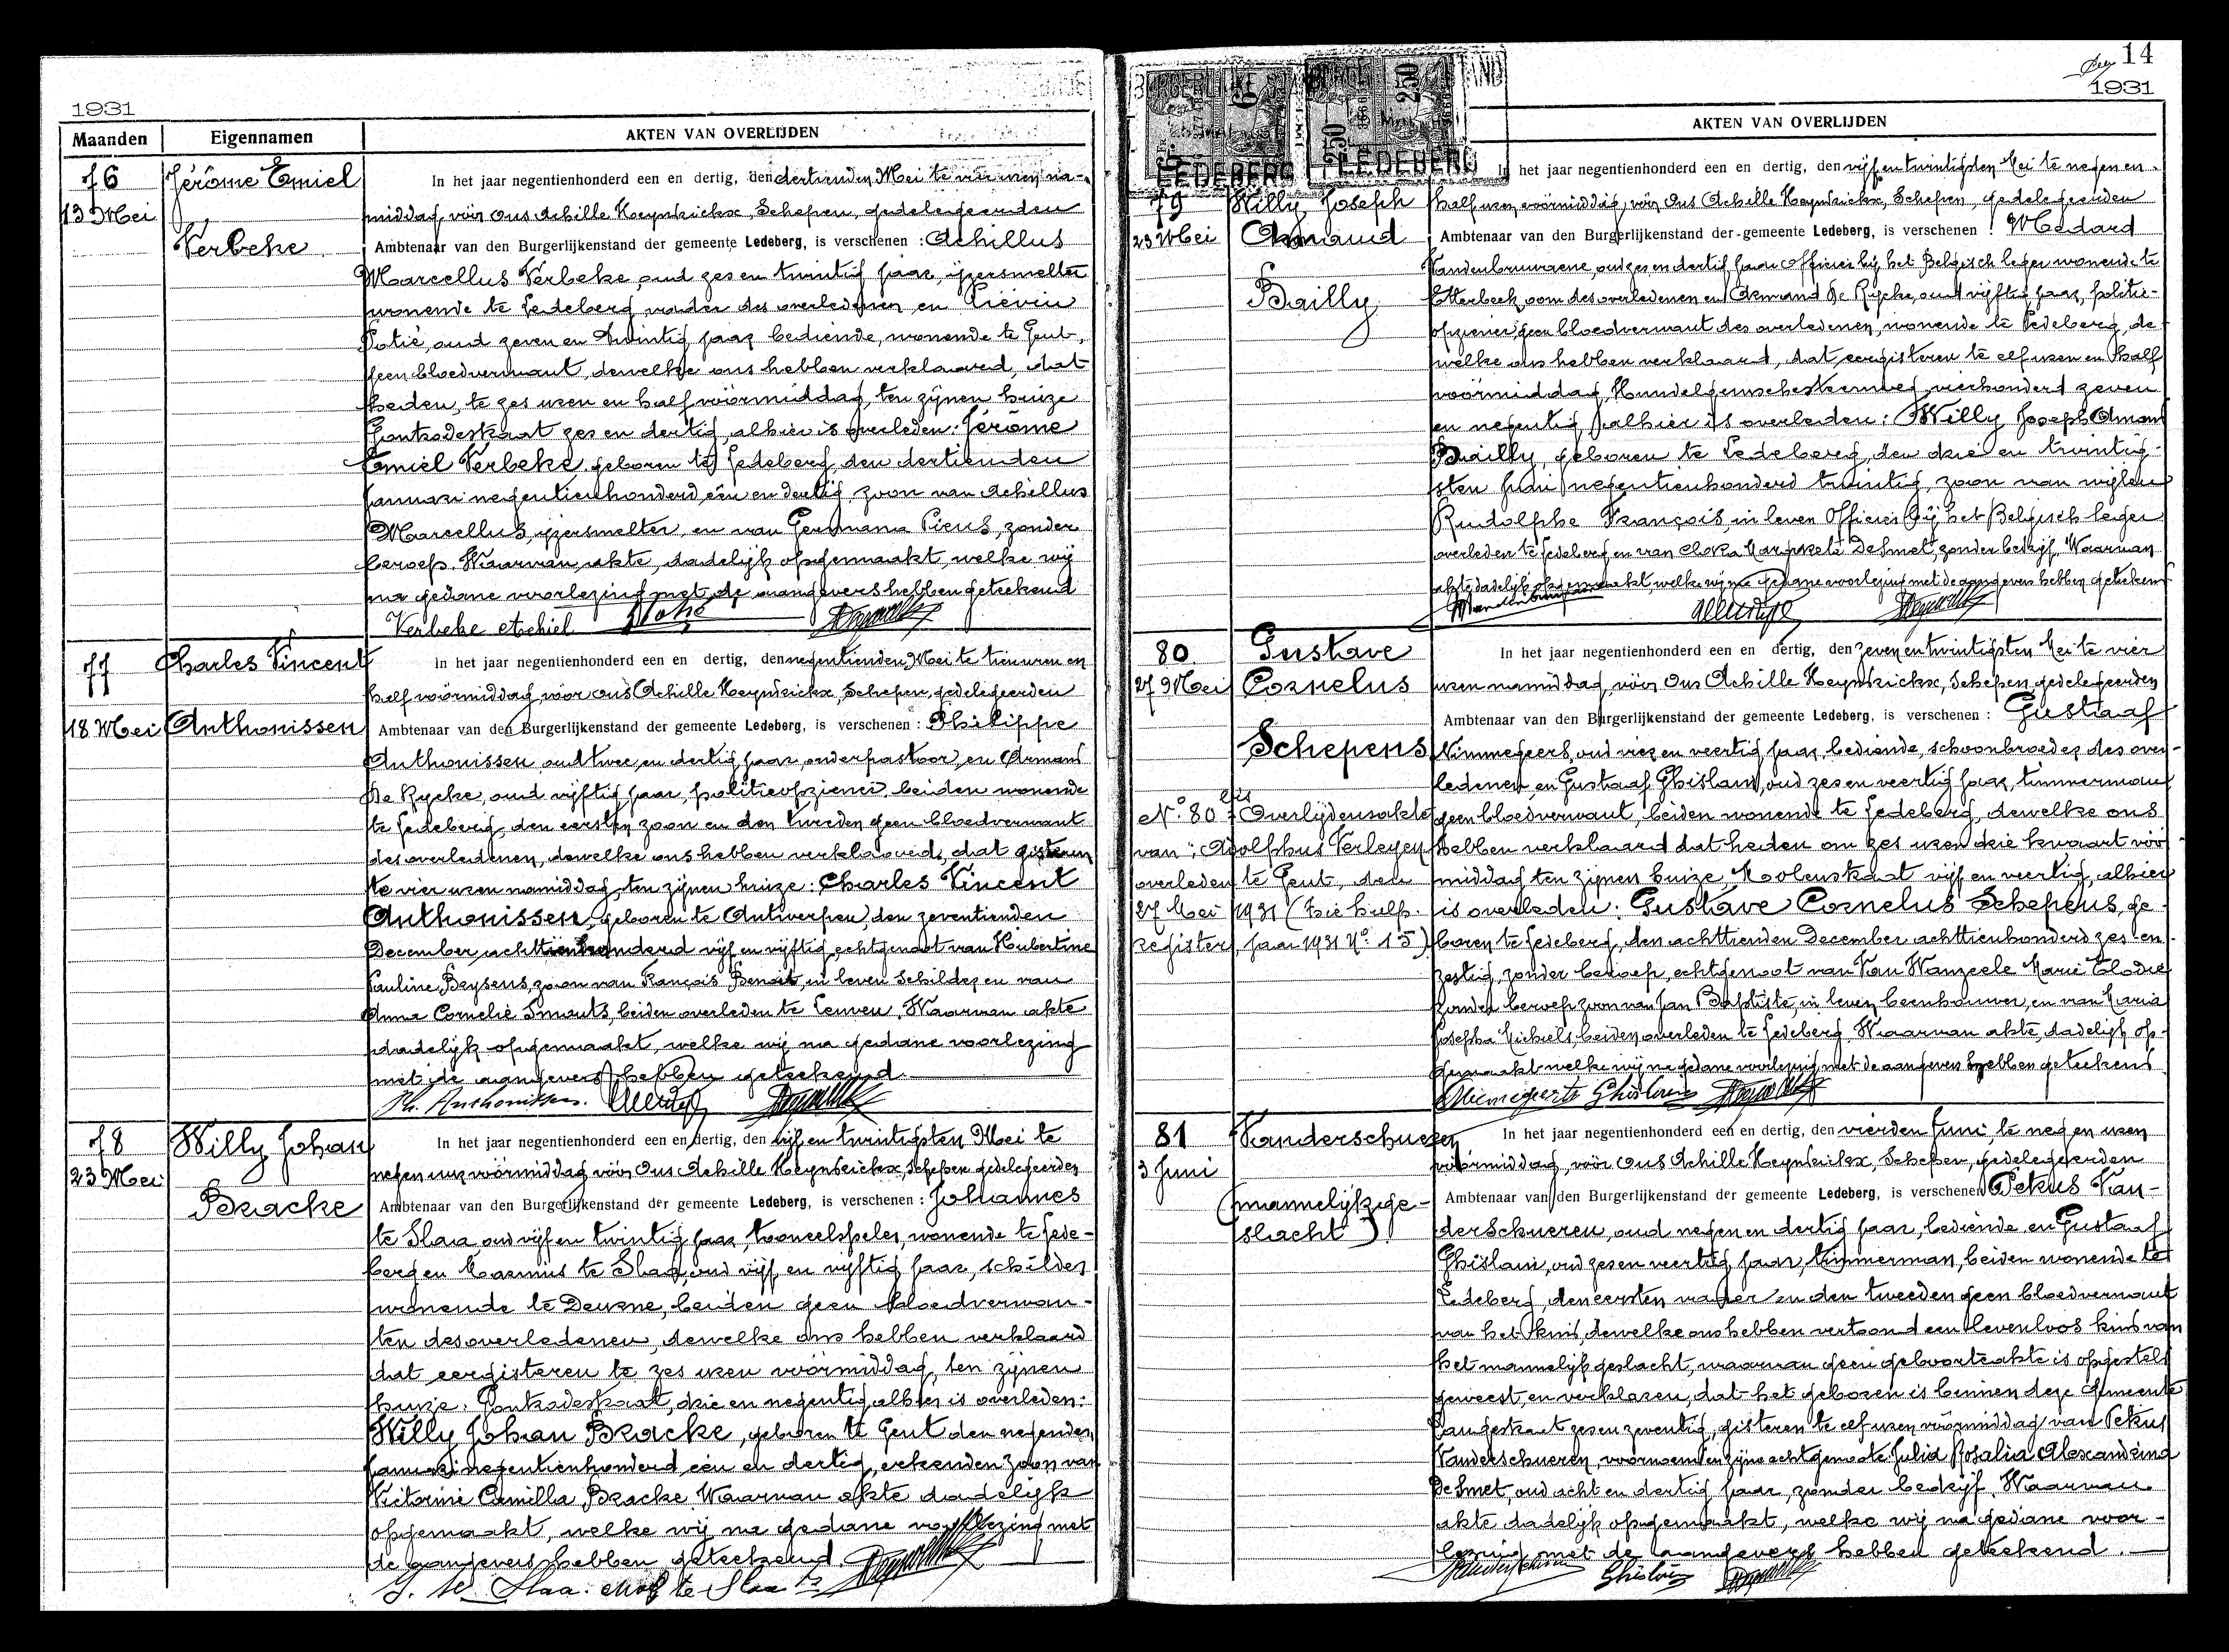 1931
Maanden Eigennamen AKTEN VAN OVERLIJDEN
76 Jérôme Emiel
13 Mei
Verbeke
In het jaar negentienhonderd een en dertig, den dertienden Mei te vier uren na-
middag vóór ons Achille Heyndrickx, Schepen, gedelegeerden
Ambtenaar van den Burgerlijkenstand der gemeente Ledeberg, is verschenen : Achillus
Marcellus Verbeke, oud zes en twintig jaar, ijzersmelter
wonende te Ledeberg vader des overledenen en Liévin
Potié, oud zeven en twintig jaar bediende, wonende te Gent,
geen bloedverwant, dewelke ons hebben verklaard, dat
heden, te zes uren en half vóórmiddag, ten zijnen huize
Hontrodestraat zes en dertig, alhier is overleden: Jérôme
Emiel Verbeke, geboren te Ledeberg, den dertienden
januari negentienhonderd één en dertig, zoon van Achillus
Marcellus, ijzersmelter, en van Germana Pieus, zonder
beroep. Waarvan akte, dadelijk opgemaakt, welke wij
na gedane voorlezing met de aangevers hebben geteekend
Verbeke Achiel Potié
77 Charles Vincent
18 Mei Anthonissen
In het jaar negentienhonderd een en dertig, den negentienden Mei te tien uren en
half vóórmiddag, vóór ons Achille Heyndrickx, Schepen, gedelegeerden
Ambtenaar van den Burgerlijkenstand der gemeente Ledeberg, is verschenen : Philippe
Anthonissen, oud twee en dertig jaar, onderpastoor, en Armand
De Rycke, oud vijftig jaar, politieopziener, beiden wonende
te Ledeberg, den eersten zoon en den tweeden geen bloedverwant
des overledenen, dewelke ons hebben verklaard, dat gisteren
te vier uren namiddag, ten zijnen huize: Charles Vincent
Anthonissen, geboren te Antwerpen, den zeventienden
December achttienhonderd vijf en vijftig, echtgenoot van Hubertine
Pauline Beysens, zoon van François Benoit, in leven Schilder en van
Anna Cornelie Smouts, beiden overleden te Leuven. Waarvan akte
dadelijk opgemaakt, welke wij na gedane voorlezing
met de aangevers hebben geteekend.
Ph. Anthonissen.
78 Willy Johan
23 Mei
Bracke
In het jaar negentienhonderd een en dertig, den vijf en twintigsten Mei te
negen uur vóórmiddag vóór Ons Achille Heyndrickx, schepen gedelegeerden
Ambtenaar van den Burgerlijkenstand der gemeente Ledeberg, is verschenen : Johannes
te Slaa, oud vijf en twintig jaar, tooneelspeler, wonende te Lede-
berg en Marinus te Slaa, oud vijf en vijftig jaar, schilder
wonende te Deurne, beiden geen bloedverwan-
ten des overledenen, dewelke ons hebben verklaard
dat eergisteren te zes uren vóórmiddag, ten zijnen
huize, Hontrodestraat, drie en negentig, alhier is overleden:
Willy Johan Bracke, geboren te Gent den negenden
januari negentienhonderd één en dertig, erkenden zoon van
Victorine Camilla Bracke. Waarvan akte dadelijk
opgemaakt, welke wij na gedane voorlezing met
de aangevers hebben geteekend.
J. te Slaa. M te Slaa
14
1931
AKTEN VAN OVERLIJDEN
LEDEBERG LEDEBERG
79 Willy Joseph
23 Mei Armand
Bailly
In het jaar negentienhonderd een en dertig, den vijf en twintigsten Mei te negen en
half uren vóórmiddag, vóór Ons Achille Heyndrickx, Schepen, gedelegeerden
Ambtenaar van den Burgerlijkenstand der gemeente Ledeberg, is verschenen : Médard
Vandenbruwaene, oud zes en dertig jaar officier bij het Belgisch leger wonende te
Etterbeek, oom des overledenen en Armand De Rycke, oud vijftig jaar, politie-
opziener, geen bloedverwant des overledenen, wonende te Ledeberg, de-
welke ons hebben verklaard, dat, eergisteren te elf uren en half
vóórmiddag, Hundelgemschesteenweg vierhonderd zeven
en negentig, alhier is overleden: Willy Joseph Armand
Bailly, geboren te Ledeberg, den drie en twintig-
sten juni negentienhonderd twintig, zoon van wijlen
Rudolphe François in leven Officier bij het Belgisch leger
overleden te Ledeberg en van Clara Margareta De Smet, zonder bedrijf. Waarvan
akte dadelijk opgemaakt, welke wij na gedane voorlezing met de aangevers hebben geteekend
80 Gustave
27 Mei Cornelus
Schepens
No. 80 bis Overlijdensakte
van: Adolphus Verleyen
overleden te Gent, den
27 Mei 1931 (zie hulp-
register, jaar 1931 No. 15)
In het jaar negentienhonderd een en dertig, den zeven en twintigsten Mei te vier
uren namiddag, vóór Ons Achille Heyndrickx, Schepen, gedelegeerden
Ambtenaar van den Burgerlijkenstand der gemeente Ledeberg, is verschenen : Gustaaf
Nimmegeers, oud vier en veertig jaar, bediende, schoonbroeder des over-
ledenen en Gustaaf Ghislain, oud zes en veertig jaar, timmerman
geen bloedverwant, beiden wonende te Ledeberg, dewelke ons
hebben verklaard dat heden om zes uren drie kwaart vóór
middag ten zijnen huize, Molenstraat vijf en veertig, alhier
is overleden: Gustave Cornelus Schepens, ge-
boren te Ledeberg, den achttienden December achttienhonderd zes en
zestig, zonder beroep, echtgenoot van Van Wanzeele Marie Elodie
zonder beroep zoon van Jan Baptiste, in leven beenhouwer, en van Maria
Josepha Michiels, beiden overleden te Ledeberg. Waarvan akte, dadelijk op-
gemaakt welke wij na gedane voorlezing met de aangevers hebben geteekend
Ghislain
81 Vanderschueren
3 Juni
(mannelijk ge-
slacht)
In het jaar negentienhonderd een en dertig, den vierden Juni, te negen uren
vóórmiddag, vóór ons Achille Heyndrickx, Schepen, gedelegeerden
Ambtenaar van den Burgerlijkenstand der gemeente Ledeberg, is verschenen Petrus Van-
derschueren, oud negen en dertig jaar, bediende en Gustaaf
Ghislain, oud zes en veertig jaar, timmerman, beiden wonende te
Ledeberg, den eersten vader en den tweeden geen bloedverwant
van het kind, dewelke ons hebben vertoond een levenloos kind van
het mannelijk geslacht, waarvan geen geboorteakte is opgesteld
geweest, en verklaren, dat het geboren is binnen deze Gemeente
Langestraat zes en zeventig, gisteren te elf uren vóórmiddag van Petrus
Vanderschueren, voornoemd en zijne echtgenoote Julia Rosalia Alexandrina
De Smet, oud acht en dertig jaar, zonder bedrijf. Waarvan
akte dadelijk opgemaakt, welke wij na gedane voor-
lezing met de aangevers hebben geteekend.
Ghislain